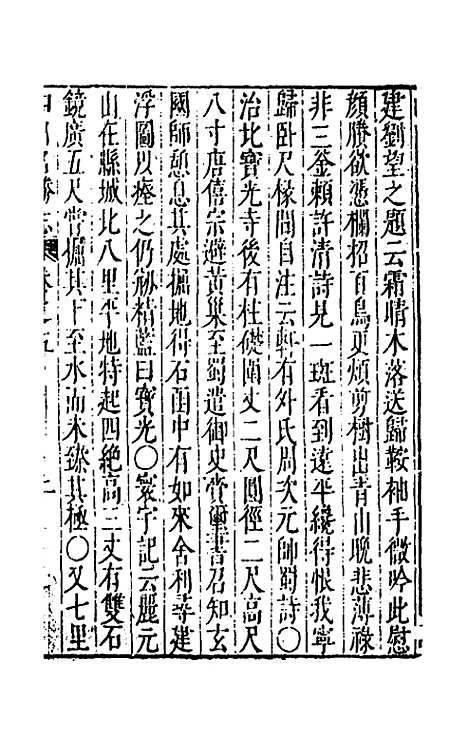 建劉望之題云霜晴木落送歸鞍袖手微吟此慰
顔賸欲憑欄招百鳥更煩剪樹出青山晩悲薄祿
非三釜頼許清詩見一斑看到遠平纔得恨我寧
歸卧尺椽間自注云軒有外氏周次元帥蜀詩〇
治北寶光寺後有柱礎圍丈二尺圓徑二尺高尺
八寸唐僖宗避黃巢至蜀遣御史賫璽書召知玄
國師憩息其處掘地得石函中有如來舍利尋建
浮圖以瘞之仍剏精藍曰寶光〇寰宇記云麗元
山在縣城北八里平地特起四絶高三丈有雙石
鏡廣五尺嘗掘其下至水而未臻其極〇又七里
名勝志